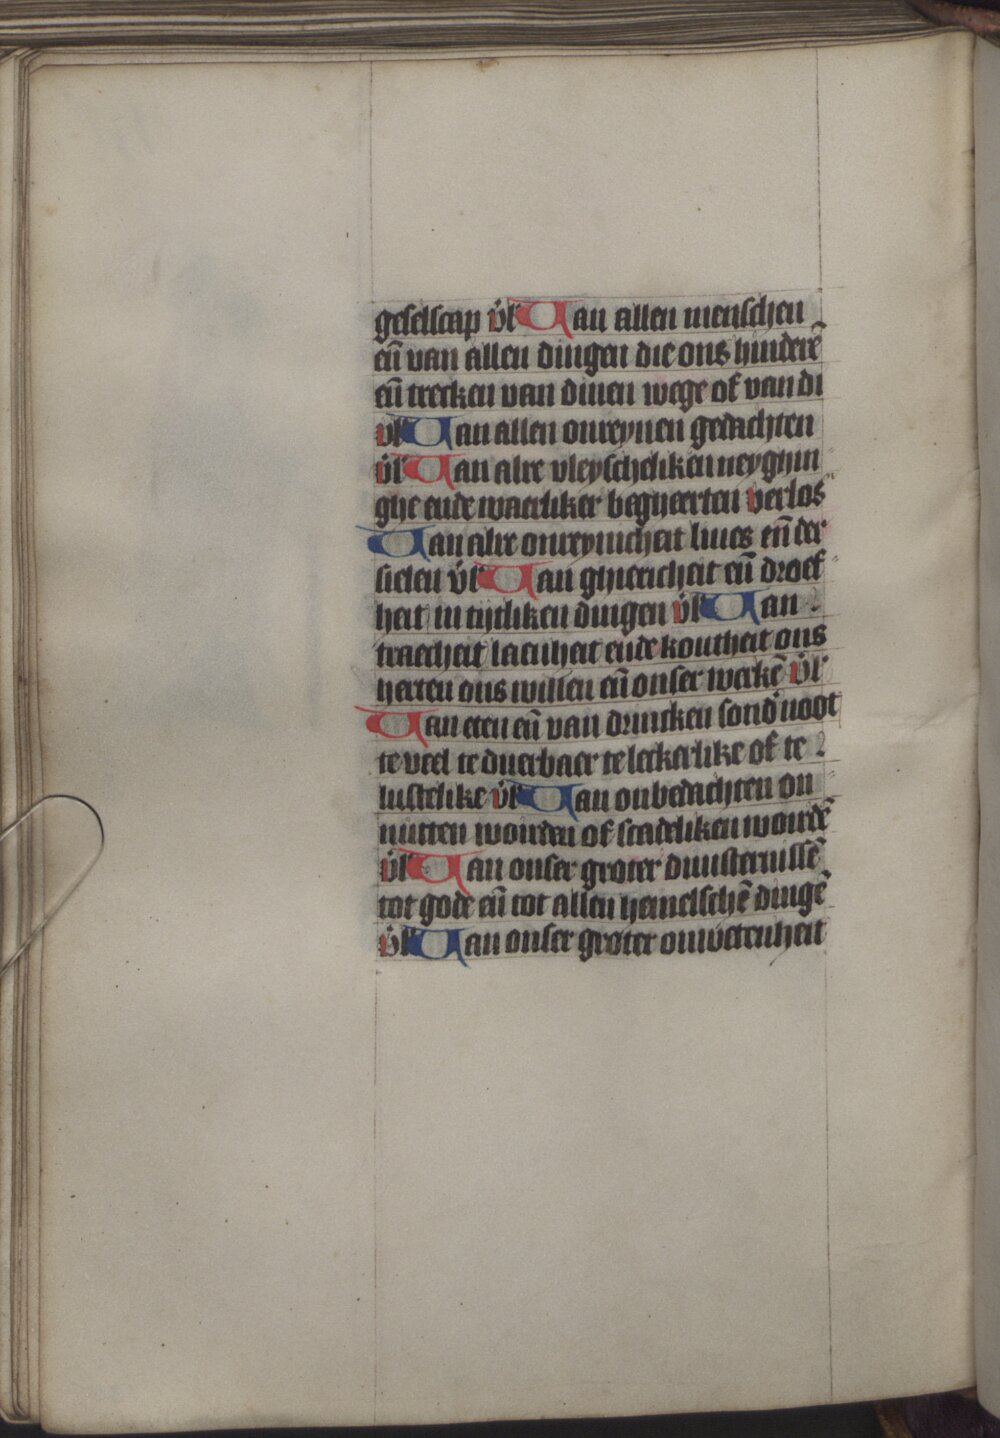 geselscap v̄l Uan allen menschen
en̄ van allen dingen die ons hinderē
en̄ trecken van dinen wege of van di
v̄l Uan allen onreynen gedachten
v̄l Uan alre vleyscheliken neyghin
ghe ende waerliker begheerten verlos
Uan alre onreynicheit lives en̄ der
sielen v̄l Uan ghiericheit en̄ droef
heit in tijtliken dingen v̄l Uan
traecheit laeuheit ende koutheit ons
herten ons willen en̄ onser werkē v̄l
Uan eten en̄ van drincken sond' noot
te veel te duerbaer te leckerlike of te
lustelike v̄l Uan onbedachten on
nutten woirden of scadeliken woirdē
v̄l Uan onser groter duusternissē
tot gode en̄ tot allen hemelschē dingē
v̄l Uan onser groter onwetenheit